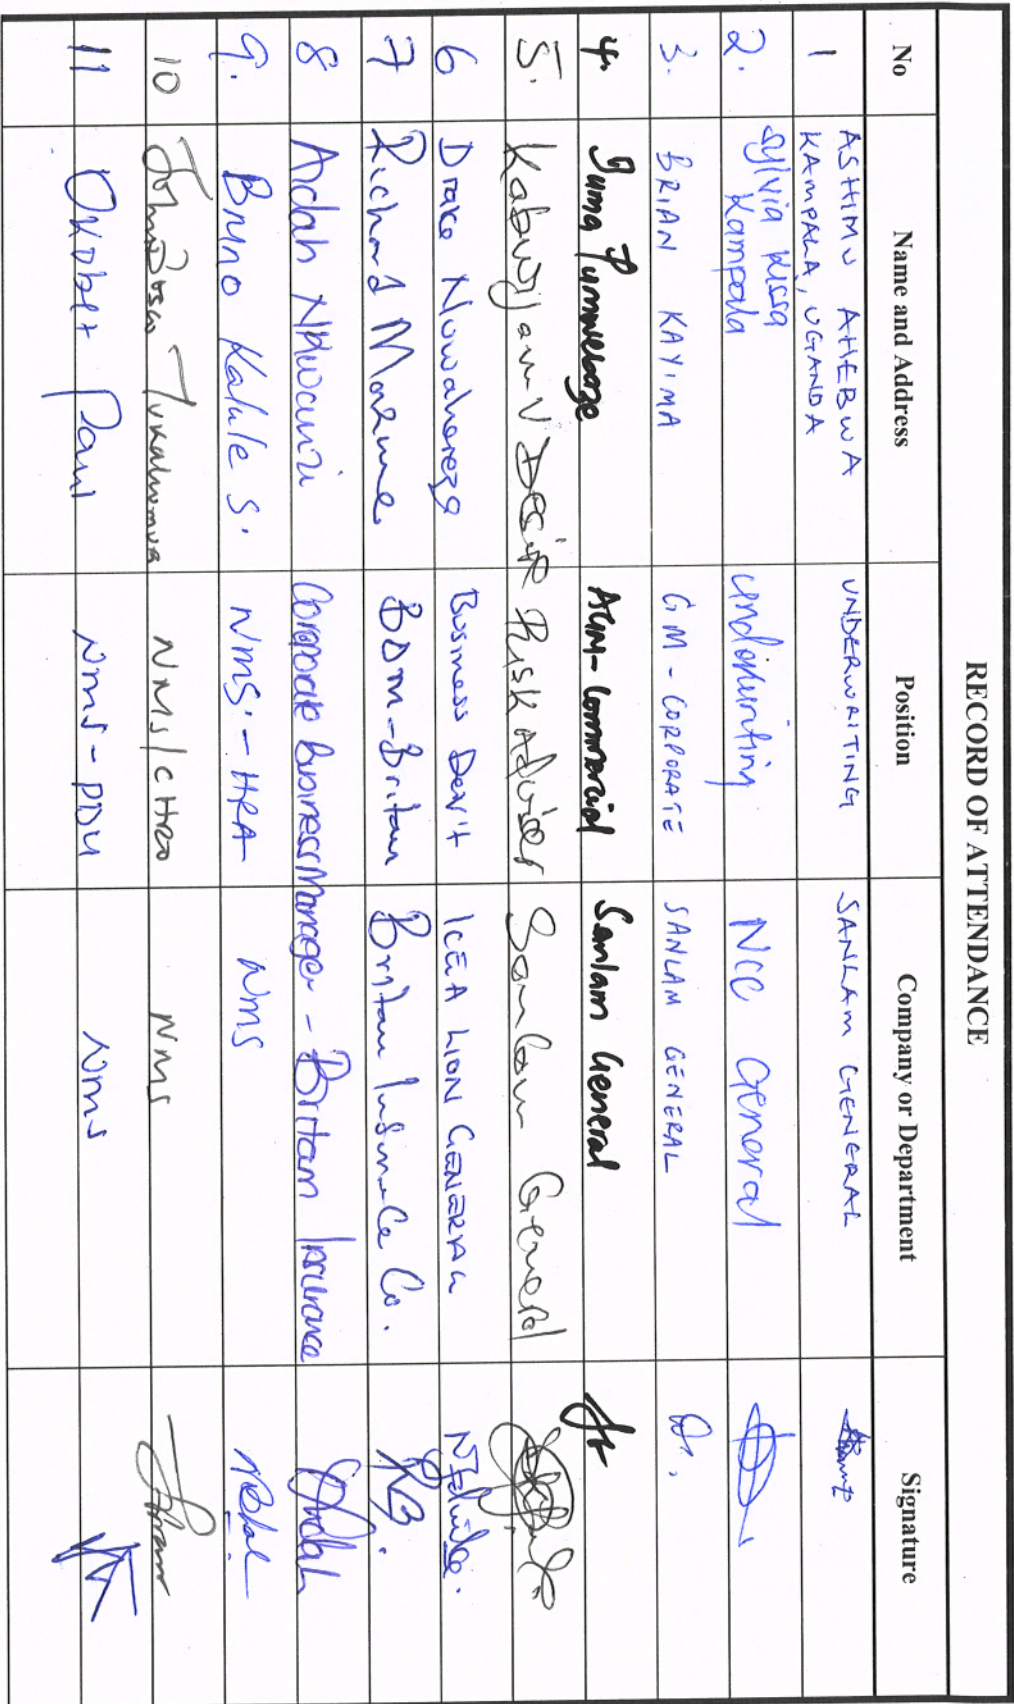 RECORD OF ATTENDANCE
No Name and Address Position Company or Department Signature
1 ASHIMU AHEBWA UNDERWRITING SANLAM GENERAL
KAMPALA, UGANDA
2. Sylvia Kissa Underwriting NIC General
Kampala
3. BRIAN KAYIMA GM-CORPORATE SANLAM GENERAL
4. Juma AGM-Commercial Sanlam General
5. Desire Risk Adviser Sanlam General
6 Drake Nuwaherega Business Dev't ICEA LION GENERAL
7 Richard BDM-Britam Britam Insurance Co.
8 Aidah Nkwanzi Corporate Business Manager - Britam Insurance
9. Bruno Kalule S. NMS.-HRA NMS
10 John Bosco Tukahumura NMS/CHRO NMS
11 Okobet Paul NMS-PDU NMS